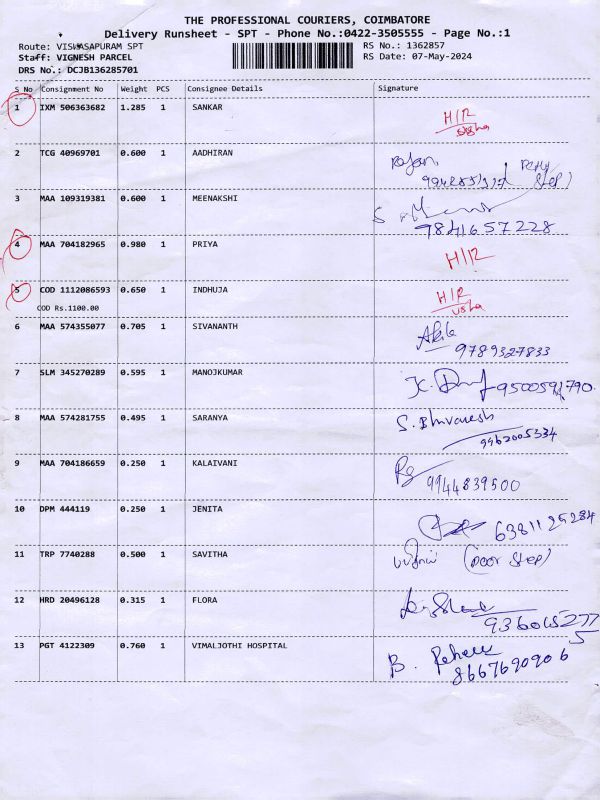 THE PROFESSIONAL COURIERS, COIMBATORE
Delivery Runsheet - SPT - Phone No.:0422-3505555 - Page No.:1
Route: VISWASAPURAM SPT RS No.: 1362857
Staff: VIGNESH PARCEL RS Date: 07-May-2024
DRS No.: DCJB136285701
S No Consignment No Weight PCS Consignee Details Signature
1 IXM 506363682 1.285 1 SANKAR H/R
usha
2 TCG 40969701 0.600 1 AADHIRAN Rajan
Step)
3 MAA 109319381 0.600 1 MEENAKSHI
9841657228
4 MAA 704182965 0.980 1 PRIYA H/R
5 COD 1112086593 0.650 1 INDHUJA H/R
COD Rs.1100.00 usha
6 MAA 574355077 0.705 1 SIVANANTH Akila
9789327833
7 SLM 345270289 0.595 1 MANOJKUMAR K. 9500591790
8 MAA 574281755 0.495 1 SARANYA S. Bhuvanesh
9962005334
9 MAA 704186659 0.250 1 KALAIVANI
9944839500
10 DPM 444119 0.250 1 JENITA 6381125284
11 TRP 7740288 0.500 1 SAVITHA (Door Step)
12 HRD 20496128 0.315 1 FLORA
13 PGT 4122309 0.760 1 VIMALJOTHI HOSPITAL B.
8667690906